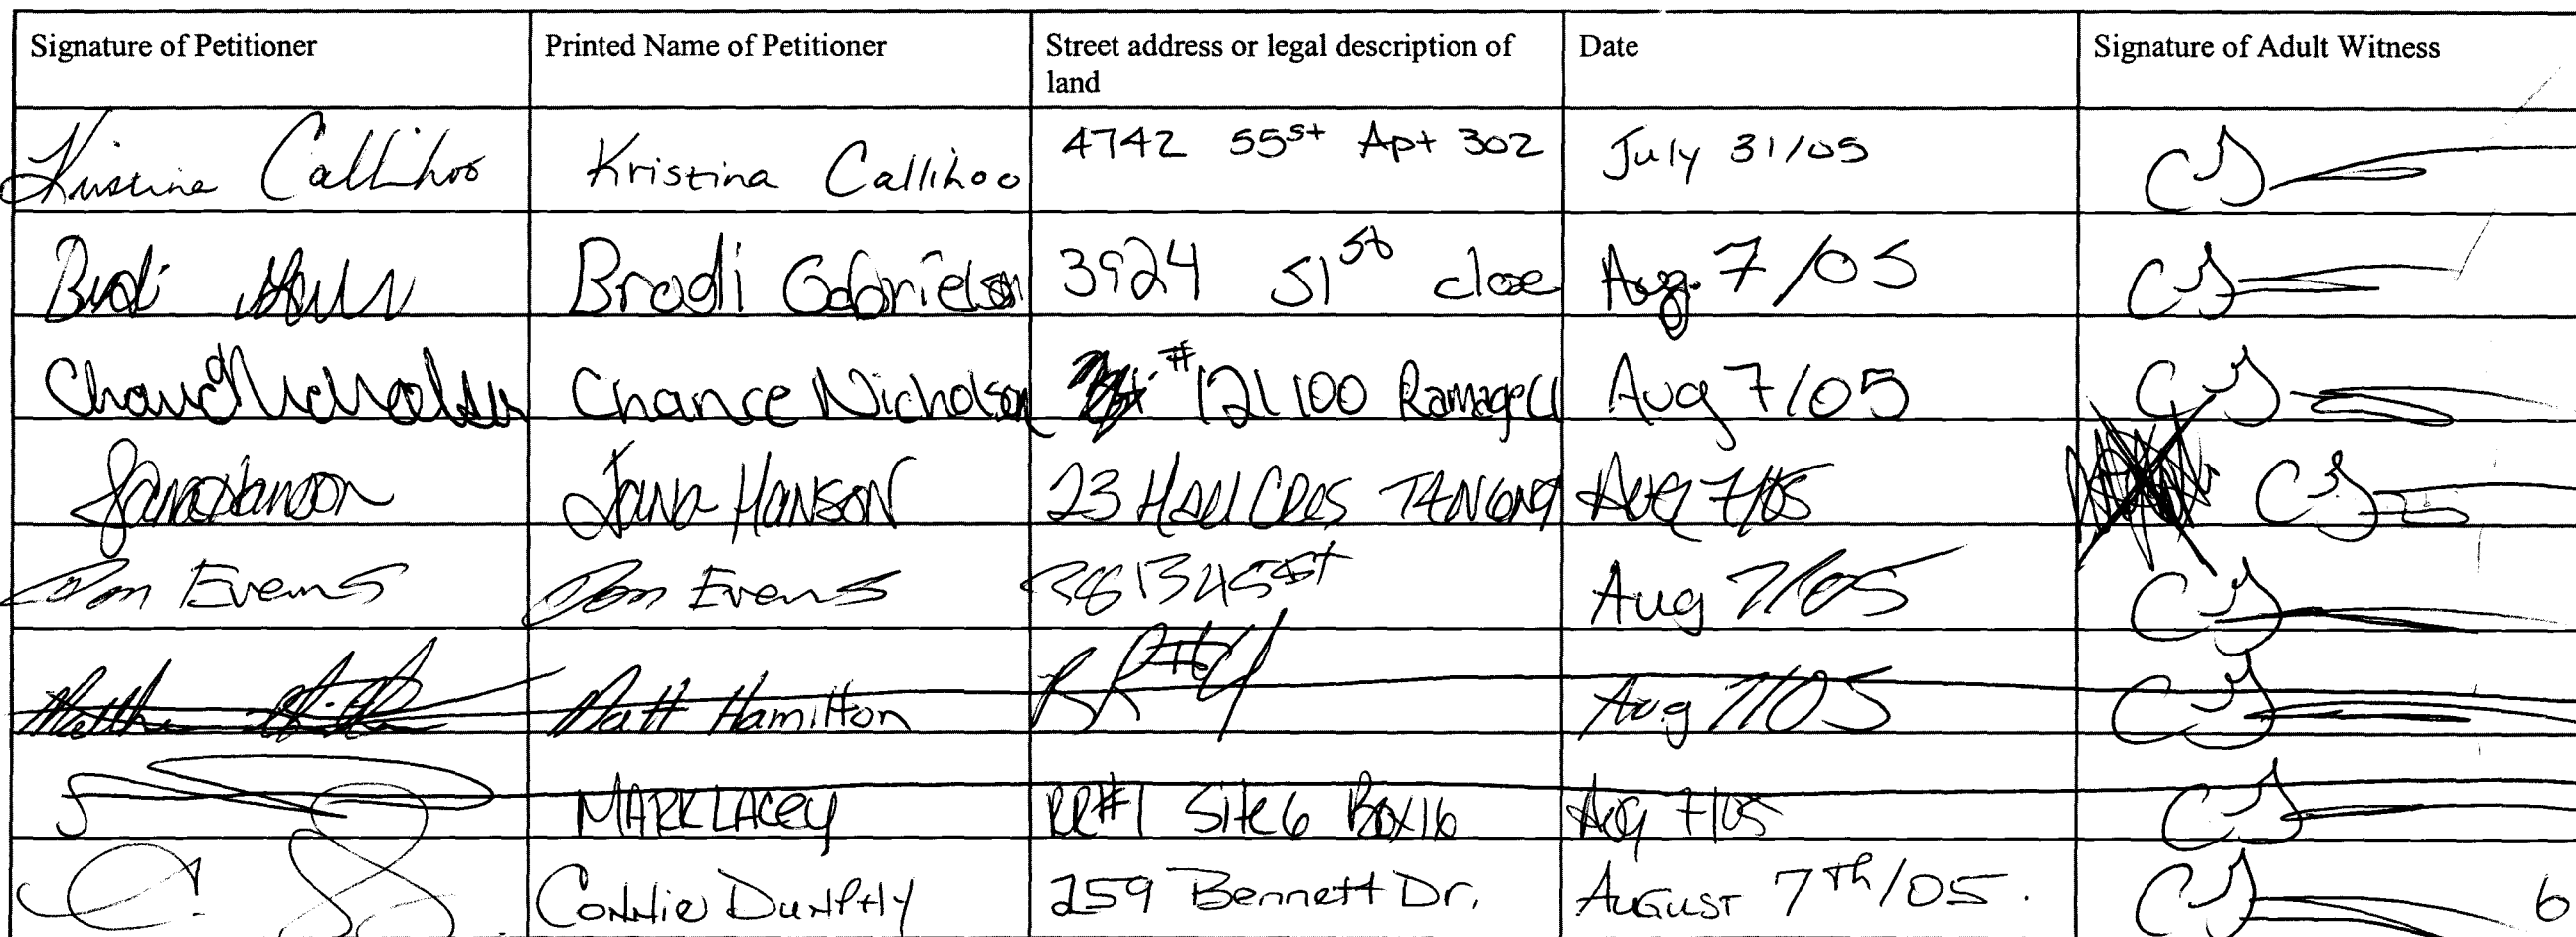 Signature of Petitioner Printed Name of Petitioner Street address or legal description of land Date Signature of Adult Witness
Kristina Callihoo Kristina Callihoo 4742 55st Apt 302 July 31/05 CS
Bradi Gabrielson 3924 51st close Aug. 7/05 CS
Chance Nicholson Chance Nicholson #121 100 Ramage Cl Aug 7/05 CS
Jana Hanson Jana HANSON 23 Hall CRES Aug 7/05 CS
Don Evens Don Evens 3813 45st Aug 7/05 CS
Matt Hamilton RR#4 Aug 7/05 CS
MARK LACEY RR#1 Site 6 Box 16 Aug 7/05 CS
Connie Dunphy 259 Bennett Dr. August 7th/05. CS 6